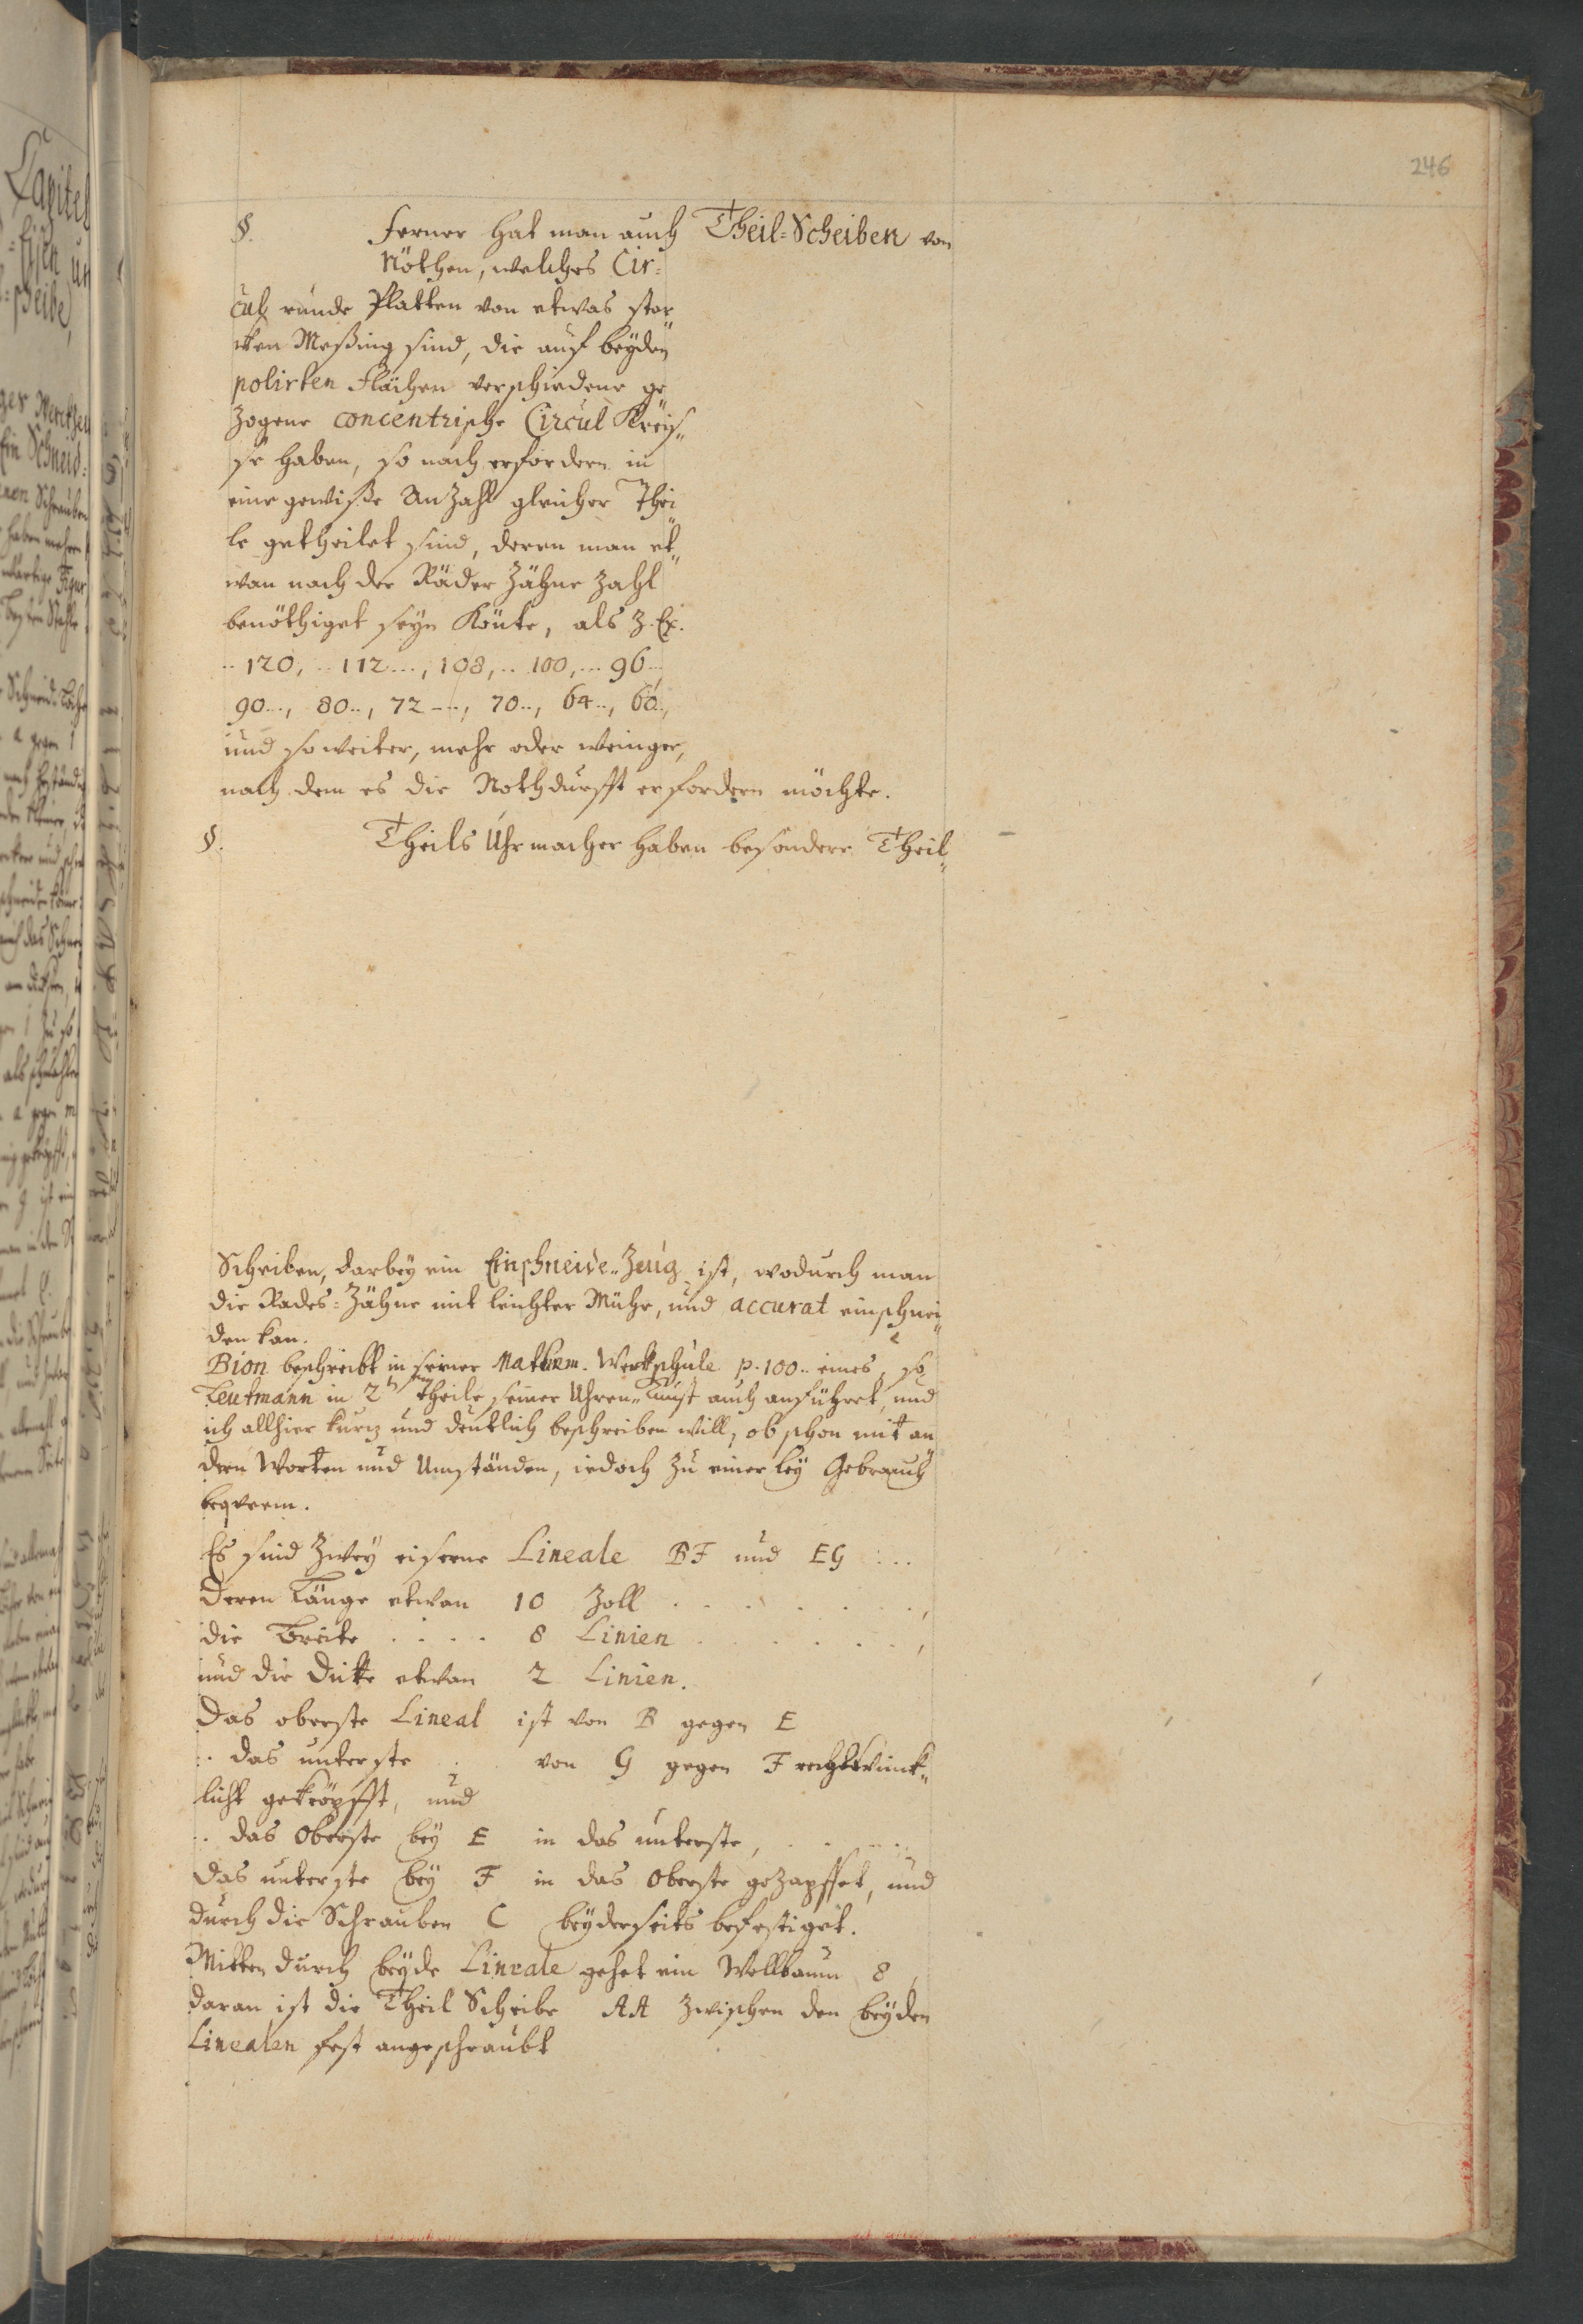 246
§. Ferner hat man auch Theil=Scheiben von
Nöthen, welches Cir=
cul runde Platten von etwas star
cken Meßing sind, die auf beyden
polirten Flächen verschiedene ge
zogene concentrische Circul Kreis„
se haben, so nach erfordern in
eine gewiße Anzahl gleicher Thei
le getheilet sind, deren man et„
wan nach der Räder Zähne zahl
benöthiget seyn könte, als z. Ex.
.. 120, .. 112 ..., 108, .. 100, ... 96 ...,
90 ..., 80 .., 72 ---, 70 .., 64 .., 60 ..,
und so weiter, mehr oder weniger,
nach dem es die Nothdurfft erfordern möchte.
§. Theils Uhrmacher haben besondere Theil„
Scheiben, darbey ein Einschneide„Zeug ist, wodurch man
die Rades=Zähne mit leichter Mühe, und accurat einschnei„
den kan.
Bion beschreibt in seiner Mathem. Werkschule p. 100 .. eines, so
Leutmann in 2ten theile seiner Uhren„Kunst auch anführet, und
ich allhier kurz und deutlich beschreiben will, ob schon mit an
dern Worten und Umständen, iedoch zu einerley Gebrauch
beqveem.
Es sind zwey eiserne Lineale BF und EG : ..
deren Länge etwan 10 Zoll . . . . . . . ,
die Breite . . . . 8 Linien . . . . . . ,
und die Dicke etwan 2 Linien.
Das oberste Lineal ist von B gegen E
.. das unterste . von G gegen F rechtwinck„
licht gekröpfft, und
.. das oberste bey E in das unterste, . . . . .
das unterste bey F in das oberste gezapffet, und
durch die Schrauben C beyderseits befestiget.
Mitten durch beyde Lineale gehet ein Wellbaum 8,
daran ist die Theil Scheibe AA zwischen den beyden
Linealen fest angeschraubt